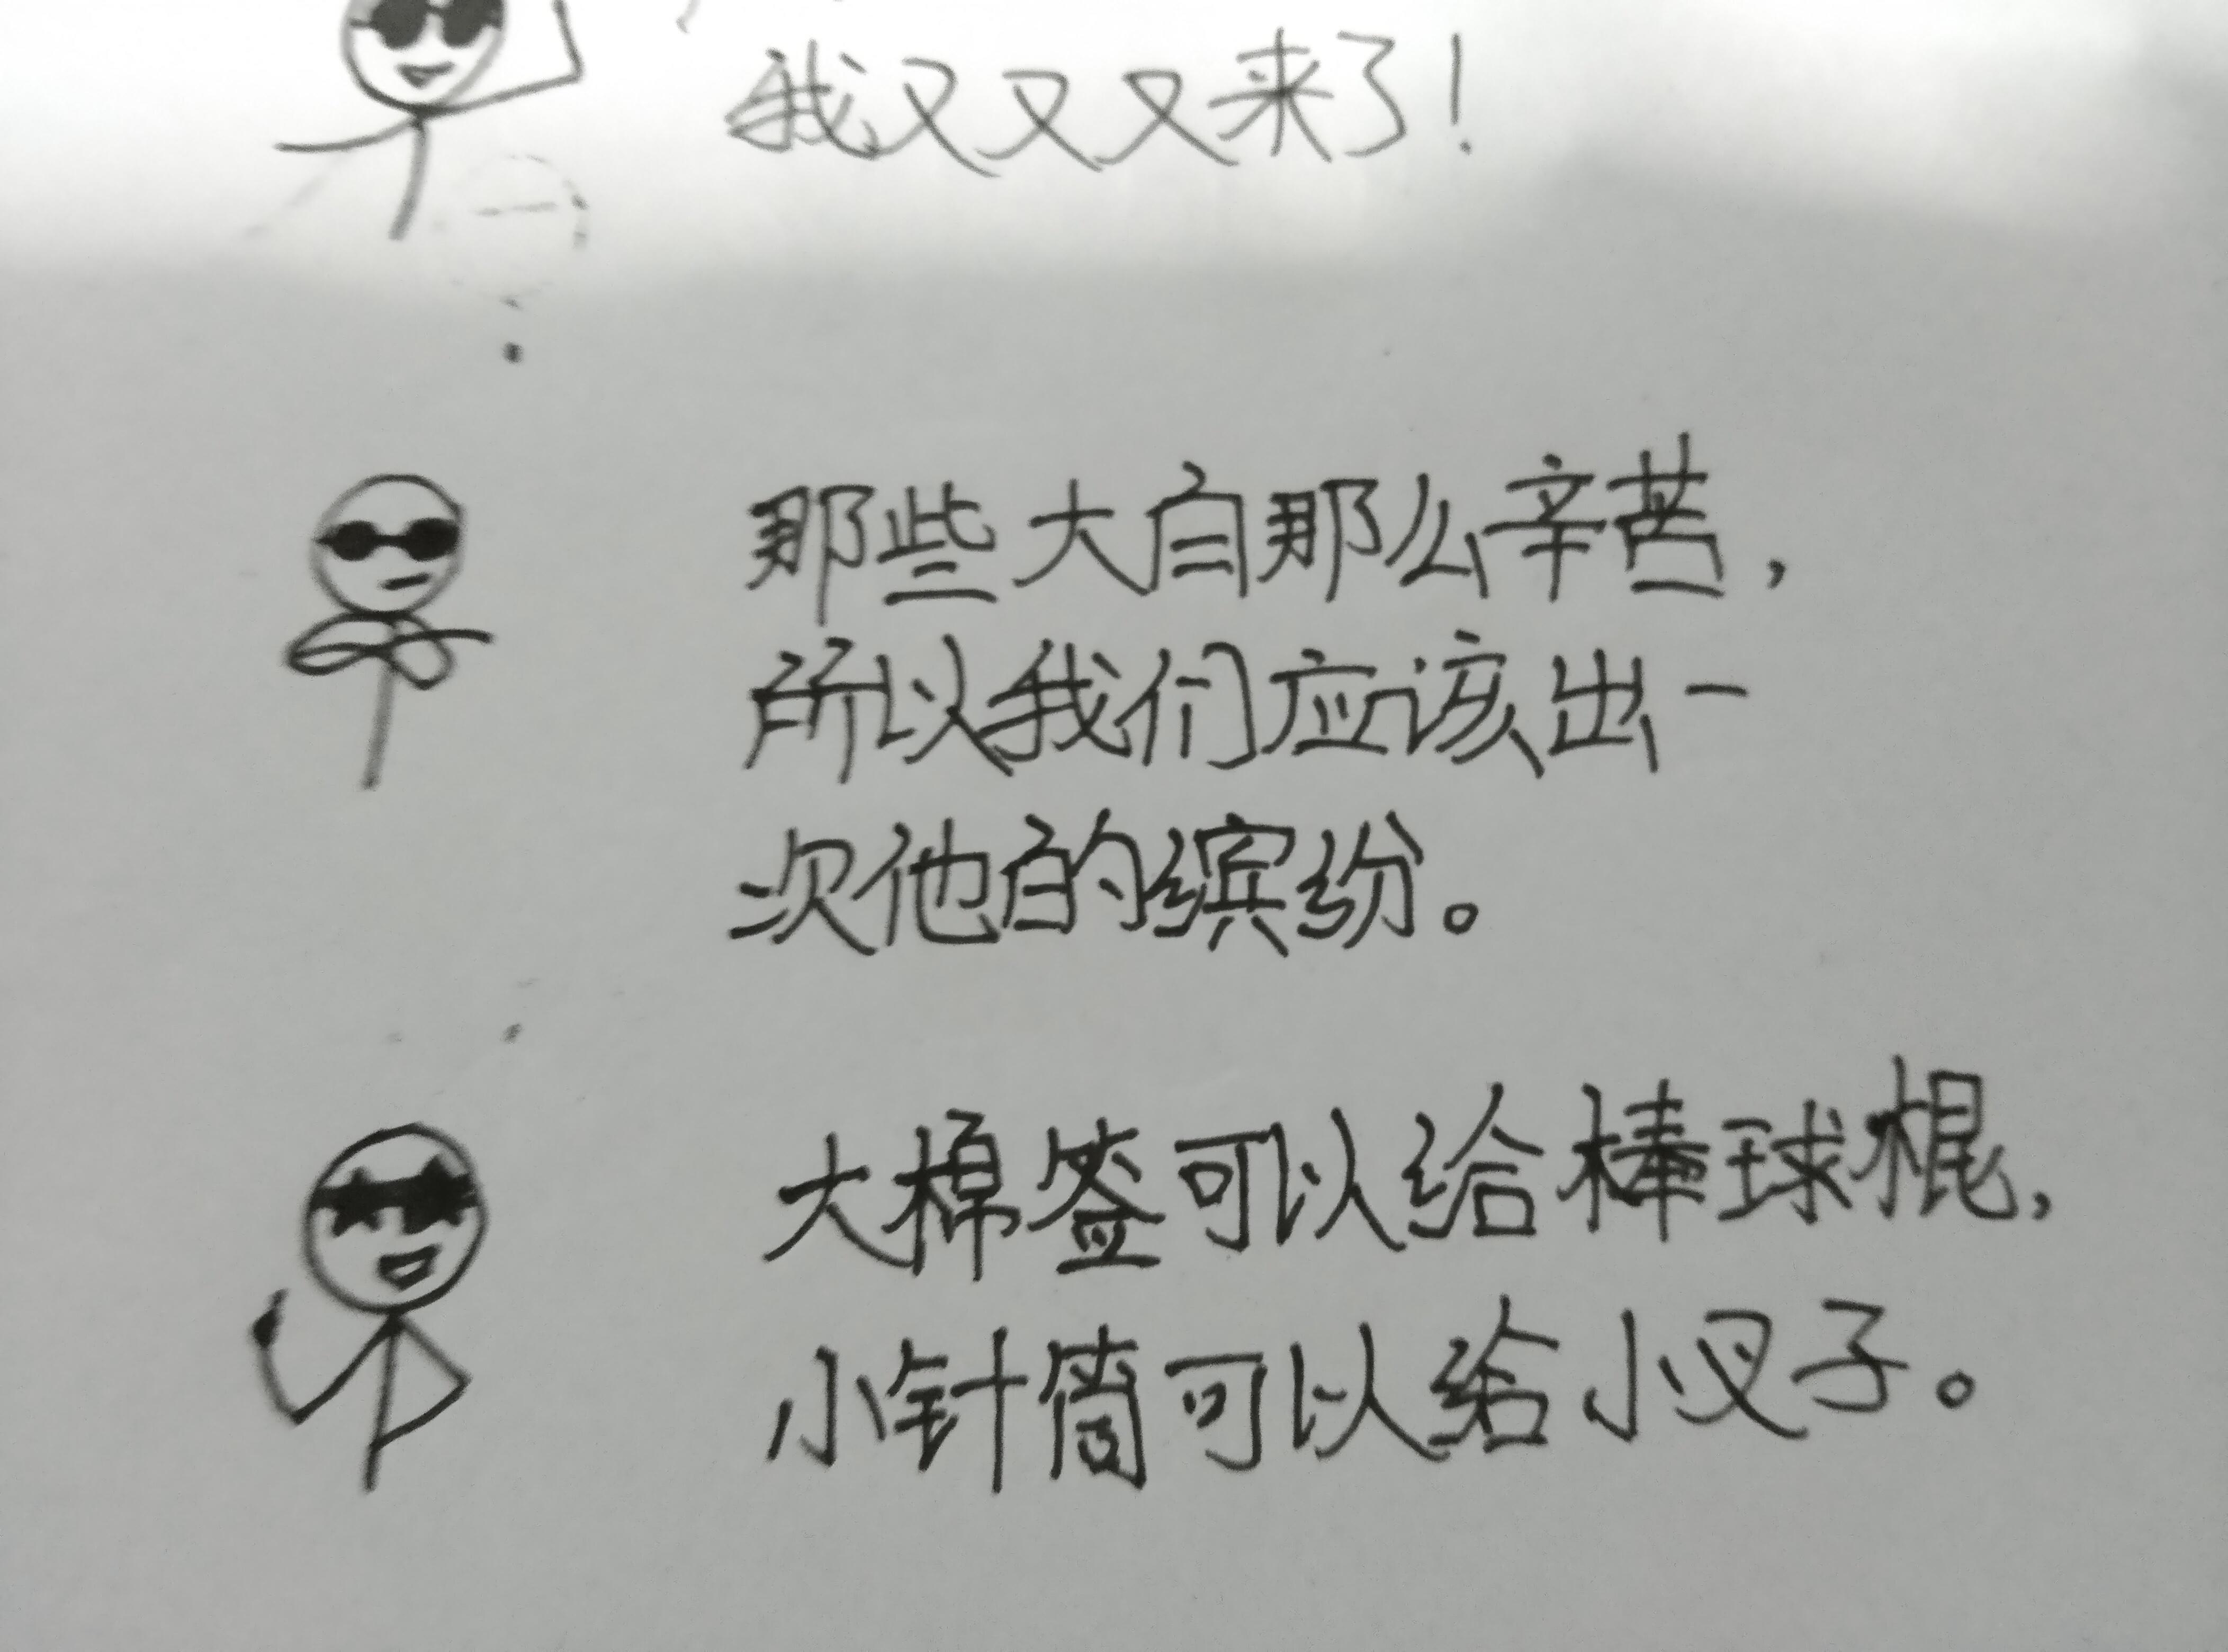 我又又又来了！
那些大白那么辛苦，
所以我们应该出一
次他的缤纷。
大棉签可以给棒球棍，
小针筒可以给小叉子。